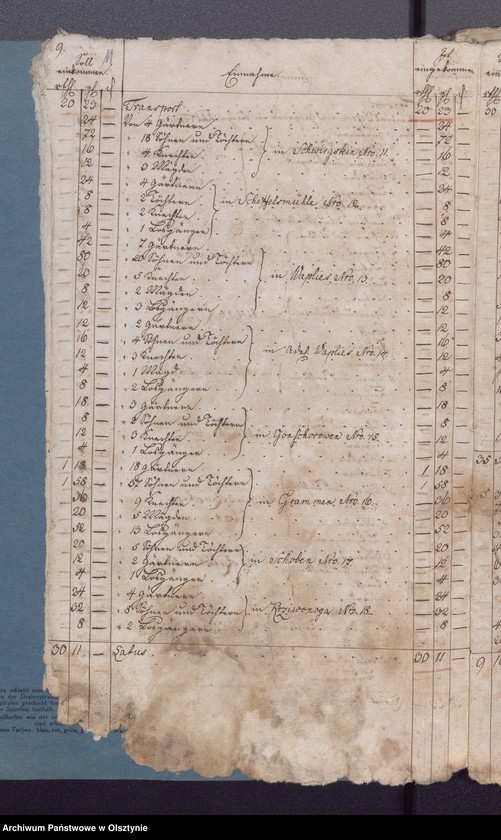 9. 11
Soll einkommen. Einnahme. Ist eingekommen
rtl gl rtl gl
20 23 — Transport 20 23 —
— 24 — Von 4 Gärtnern — 24 —
— 72 — " 18 Söhnen und Töchtern — 72 —
— 16 — " 4 Knechten } in Schwirgstein Nro. 11. — 16 —
— 12 — " 3 Mägden — 12 —
— 24 — " 4 Gärtnern — 24 —
— 8 — " 2 Töchtern } in Scheffelsmühle Nro. 12. — 8 —
— 8 — " 2 Knechten — 8 —
— 4 — " 1 Losgänger — 4 —
— 42 — " 7 Gärtnern — 42 —
— 80 — " 20 Söhnen und Töchtern — 80 —
— 20 — " 5 Knechten } in Waplies Nro. 13. — 20 —
— 8 — " 2 Mägden — 8 —
— 12 — " 3 Losgängern — 12 —
— 12 — " 2 Gärtnern — 12 —
— 16 — " 4 Söhnen und Töchtern — 16 —
— 12 — " 3 Knechten } in Waplies Nro. 14. — 12 —
— 4 — " 1 Magd — 4 —
— 8 — " 2 Losgängern — 8 —
— 18 — " 3 Gärtnern — 18 —
— 8 — " 2 Söhnen und Töchtern — 8 —
— 12 — " 3 Knechten } in Nro. 15. — 12 —
— 4 — " 1 Losgänger — 4 —
1 18 — " 18 Gärtnern 1 18 —
1 58 — " Söhnen und Töchtern 1 58 —
— 36 — " 9 Knechten } in Grammen Nro. 16. — 36 —
— 20 — " 5 Mägden — 20 —
— 52 — " 13 Losgängern — 52 —
— 20 — " 5 Söhnen und Töchtern — 20 —
— 12 — " 2 Gärtnern } in Schoben Nro. 17. — 12 —
— 4 — " 1 Losgänger — 4 —
— 24 — " 4 Gärtnern — 24 —
— 32 — " 8 Söhnen und Töchtern } in Krziwonoga Nro. 18. — 32 —
— 8 — " 2 Losgängern — 8 —
30 11 — Latus 30 11 —
Archiwum Państwowe w Olsztynie